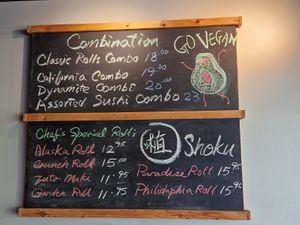 Combination GO VEGAN
Classic Rolls Combo 18.00
California Combo 19.00
Dynamite Combo 20.00
Assorted Sushi Combo 23
Chef's Special Rolls
植 Shoku
Alaska Roll 12.95
Crunch Roll 15.00
Futo Maki 11.95
Garden Roll 11.95
Paradise Roll 15.95
Philidelphia Roll 15.95